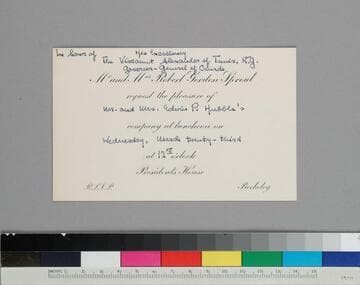 In honor of His Excellency
The Viscount Alexander of Tunis, K.G.
Governor-General of Canada
Mr. and Mrs. Robert Gordon Sproul
request the pleasure of
Mr. and Mrs. Edwin P. Hubble's
company at luncheon on
Wednesday, March twenty-third
at o'clock
President's House
R.S.V.P.
Berkeley